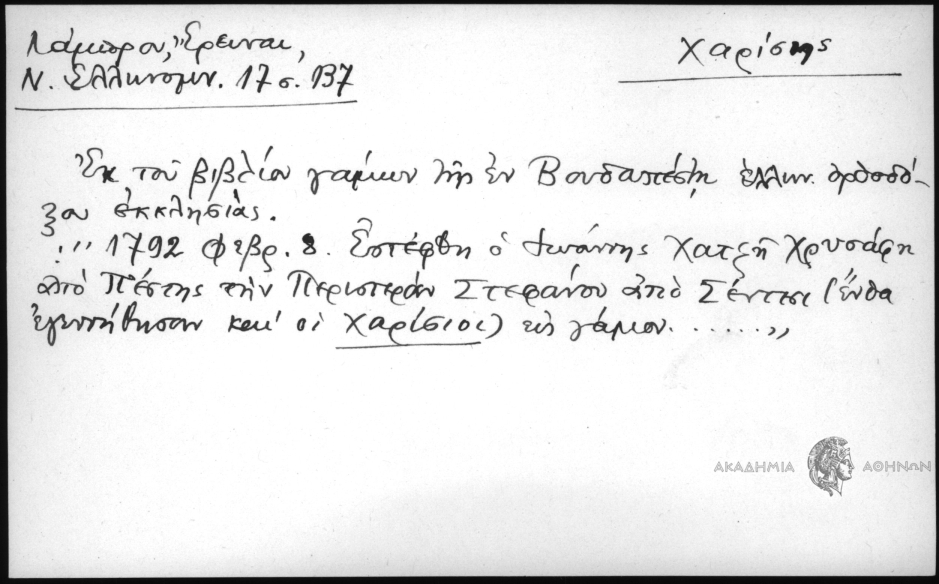 Λάμπρου, Ἔρευναι,
Ν. Ἑλληνομν. 17 σ. 137
Χαρίσης
Ἐκ τοῦ βιβλίου γάμων τῆς ἐν Βουδαπέστῃ ἑλλην. ὀρθοδό-
ξου ἐκκλησίας.
„ 1792 Φεβρ. 8. Ἐστέφθη ὁ Ἰωάννης Χατζῆ Χρυσάφη
ἀπὸ Πέστης τὴν Περιστερὰν Στεφάνου ἀπὸ Σέντεσι (ἔνθα
ἐγεννήθησαν καὶ οἱ Χαρίσιοι) εἰς γάμον ......„
ΑΚΑΔΗΜΙΑ ΑΘΗΝΩΝ